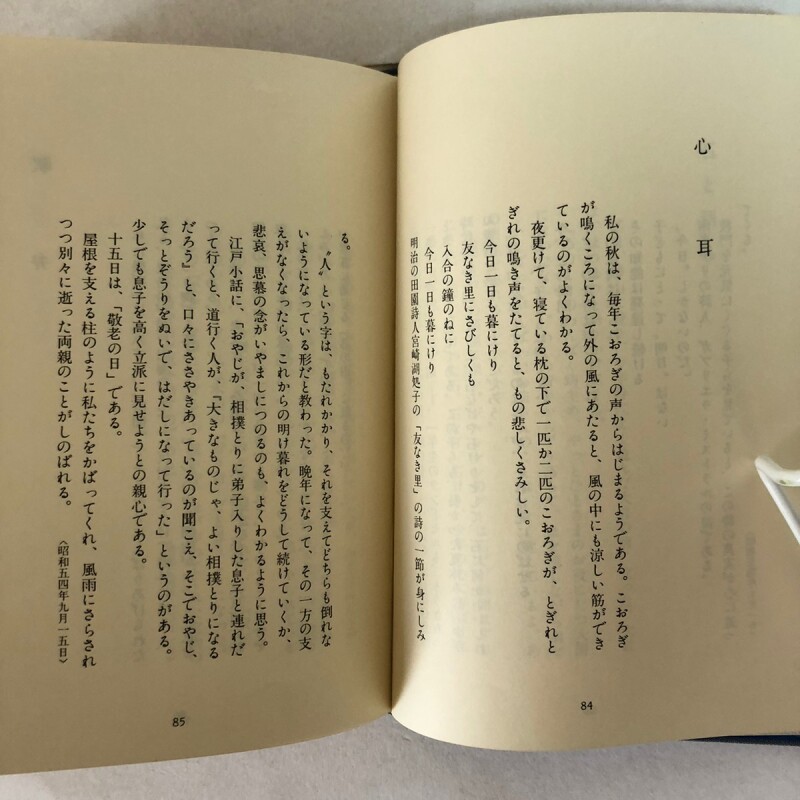 心耳
私の秋は、毎年こおろぎの声からはじまるようである。こおろぎ
が鳴くころになって外の風にあたると、風の中にも涼しい筋ができ
ているのがよくわかる。
夜更けて、寝ている枕の下で一匹か二匹のこおろぎが、とぎれと
ぎれの鳴き声をたてると、もの悲しくさみしい。
今日一日も暮にけり
友なき里にさびしくも
入合の鐘のねに
今日一日も暮にけり
明治の田園詩人宮崎湖処子の「友なき里」の詩の一節が身にしみ
84
る。
〝人〟という字は、もたれかかり、それを支えてどちらも倒れな
いようになっている形だと教わった。晩年になって、その一方の支
えがなくなったら、これからの明け暮れをどうして続けていくか、
悲哀、思慕の念がいやましにつのるのも、よくわかるように思う。
江戸小話に、「おやじが、相撲とりに弟子入りした息子と連れだ
って行くと、道行く人が、「大きなものじゃ、よい相撲とりになる
だろう」と、口々にささやきあっているのが聞こえ、そこでおやじ、
そっとぞうりをぬいで、はだしになって行った」というのがある。
少しでも息子を高く立派に見せようとの親心である。
十五日は、「敬老の日」である。
屋根を支える柱のように私たちをかばってくれ、風雨にさらされ
つつ別々に逝った両親のことがしのばれる。
〈昭和五四年九月一五日〉
85